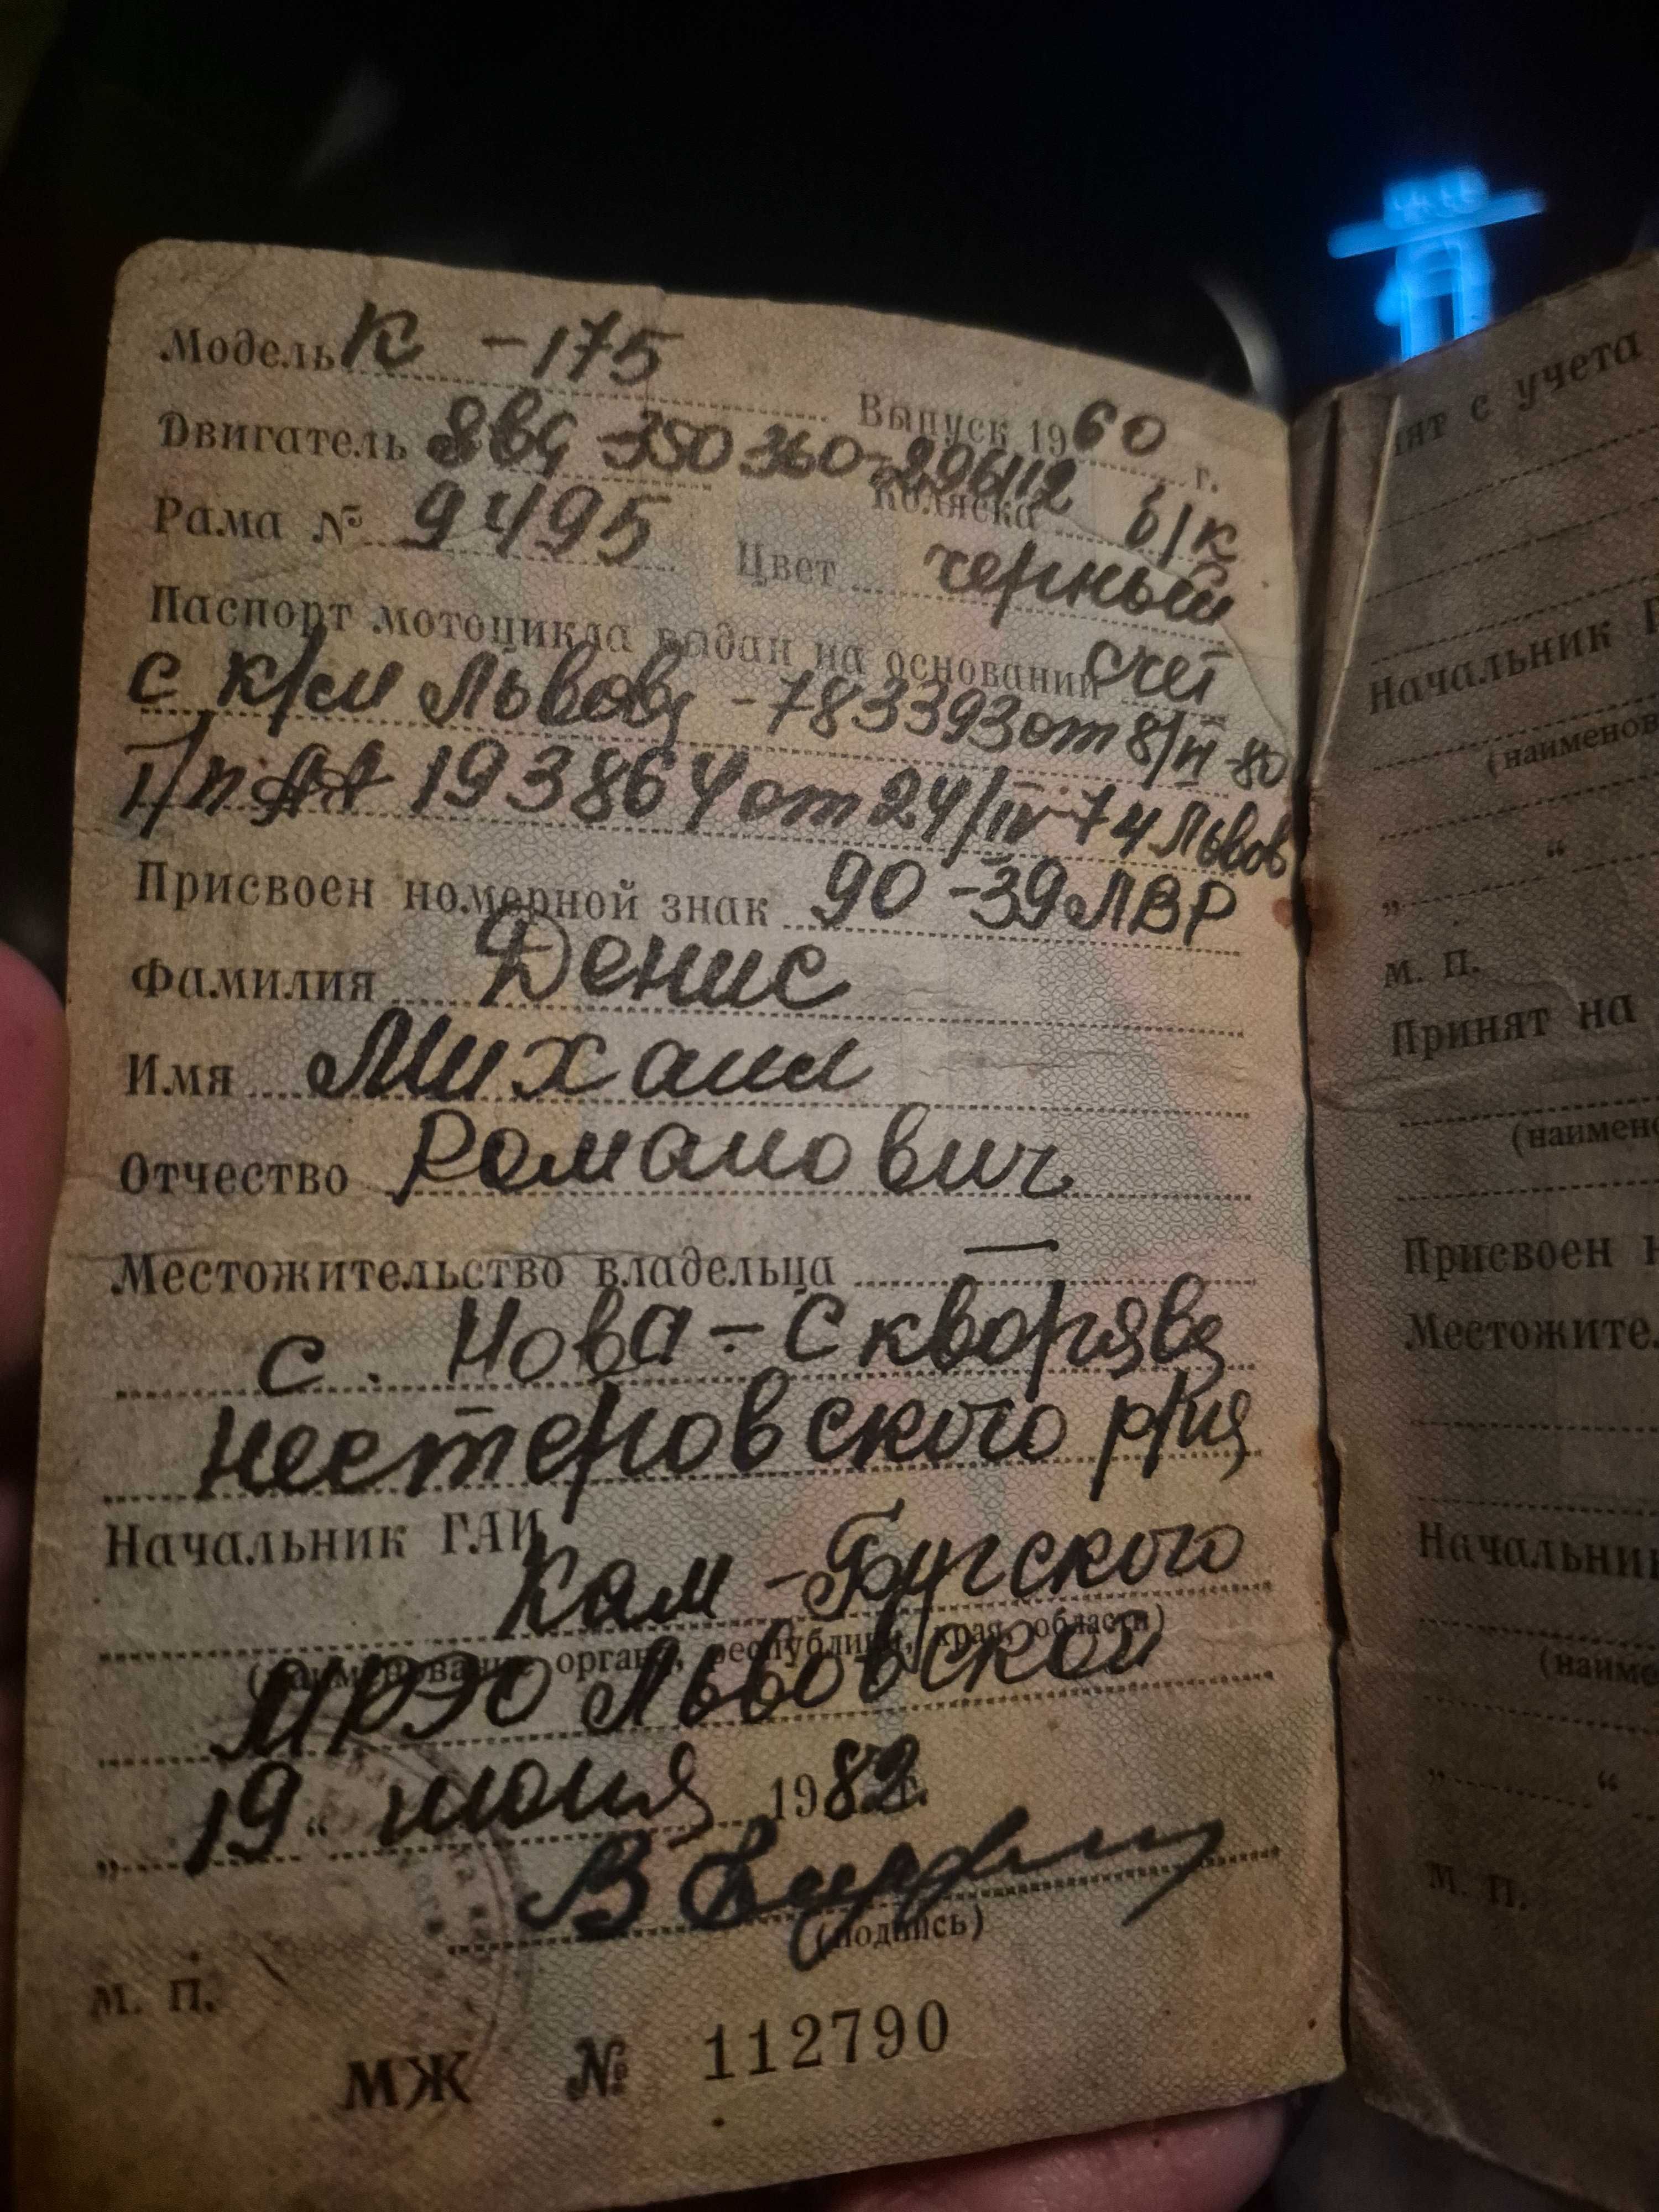 Модель К - 175
Выпуск 1960 г.
Двигатель 350 360-296112
Коляска б/к
Рама № 9495
Цвет черный
Паспорт мотоцикла выдан на основании счет
с к/м Львов -783393 от 8/VI-80
Т/п АА 193864 от 24/IV-74 Львов
Присвоен номерной знак 90-39 ЛВР
Фамилия Денис
Имя Михаил
Отчество Романович
Местожительство владельца —
с. Нова-Скворява
Нестеровского р/на
Начальник ГАИ
Кам-Бугского
(наименование органа, республики, края, области)
МРЭО Львовской
„19“ июня 1982 г.
(подпись)
М. П.
МЖ № 112790
с учета
Начальник
(наименов
„ “
М. П.
Принят на
(наимено
Присвоен н
Местожител
Начальник
(наиме
„ “
М. П.